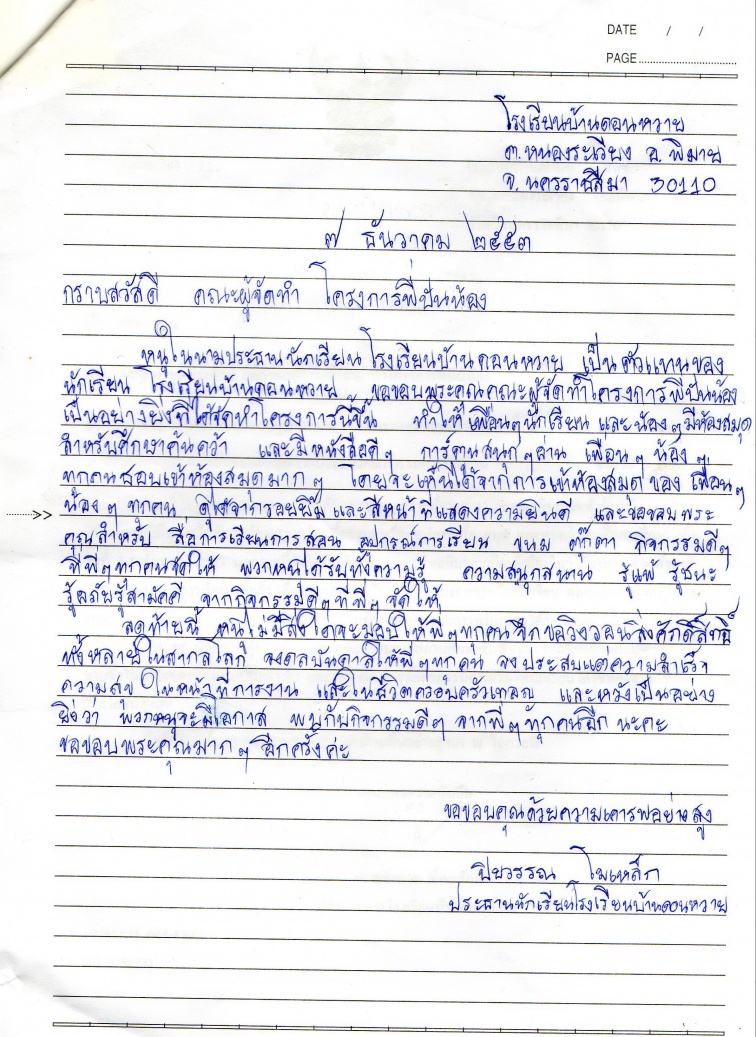 DATE / /
PAGE
โรงเรียนบ้านดอนหวาย
ต.หนองระเวียง อ.พิมาย
จ.นครราชสีมา 30110
๗ ธันวาคม ๒๕๕๓
กราบสวัสดี คณะผู้จัดทำ โครงการพี่ปันน้อง
หนูในนามประธานนักเรียนโรงเรียนบ้านดอนหวาย เป็นตัวแทนของ
นักเรียน โรงเรียนบ้านดอนหวาย ขอขอบพระคุณคณะผู้จัดทำโครงการพี่ปันน้อง
เป็นอย่างยิ่งที่ได้จัดทำโครงการนี้ขึ้น ทำให้เพื่อนๆนักเรียน และน้องๆมีห้องสมุด
สำหรับศึกษาค้นคว้า และมีหนังสือดีๆ การ์ตูนสนุกๆอ่าน เพื่อนๆ น้องๆ
ทุกคนชอบเข้าห้องสมุดมากๆ โดยจะเห็นได้จากการเข้าห้องสมุดของ เพื่อนๆ
>> น้องๆ ทุกคน ดูได้จากรอยยิ้ม และสีหน้าที่แสดงความยินดี และขอขอบพระ
คุณสำหรับ สื่อการเรียนการสอน อุปกรณ์การเรียน ขนม ตุ๊กตา กิจกรรมดีๆ
ที่พี่ๆทุกคนจัดให้ พวกหนูได้รับทั้งความรู้ ความสนุกสนาน รู้แพ้ รู้ชนะ
รู้อภัยรู้สามัคคี จากกิจกรรมดีๆที่พี่ๆ จัดให้
สุดท้ายนี้ หนูไม่มีสิ่งใดจะมอบให้พี่ๆทุกคนจึกขอวิงวอนสิ่งศักดิ์สิทธิ์
ทั้งหลายในสากลโลก จงดลบันดาลให้พี่ๆทุกคน จงประสบแต่ความสำเร็จ
ความสุข ในหน้าที่การงาน และในชีวิตครอบครัวเทอญ และหวังเป็นอย่าง
ยิ่งว่า พวกหนูจะมีโอกาส พบกับกิจกรรมดีๆ จากพี่ๆทุกคนอีก นะคะ
ขอขอบพระคุณมากๆ อีกครั้งค่ะ
ขอขอบคุณด้วยความเคารพอย่างสูง
ปิยวรรณ โมเหล็ก
ประธานนักเรียนโรงเรียนบ้านดอนหวาย